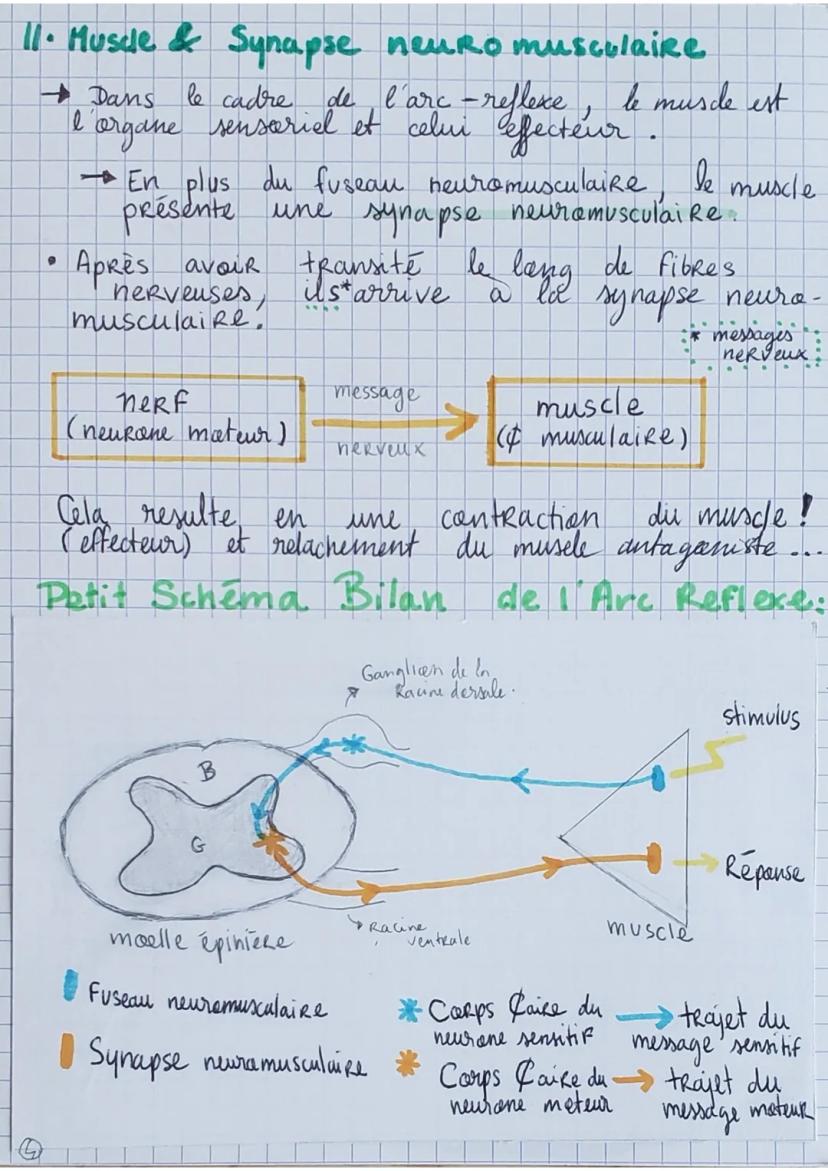 II. Muscle & Synapse neuromusculaire
→ Dans le cadre de l'arc-reflexe, le muscle est
l'organe sensoriel et celui effecteur.
→ En plus du fuseau neuromusculaire, le muscle
présente une synapse neuromusculaire.
• Après avoir transité le long de fibres
nerveuses, ils* arrive à la synapse neuro-
musculaire.
* messages
nerveux
nerf
(neurone moteur)
message
nerveux
muscle
(¢ musculaire)
Cela resulte en une contraction du muscle !
(effecteur) et relachement du muscle antagoniste ...
Petit Schéma Bilan de l'Arc Reflexe:
Ganglion de la
Racine dorsale.
stimulus
B
G
Réponse
→ Racine
ventrale
muscle
moelle épinière
Fuseau neuromusculaire
Synapse neuromusculaire
Corps ¢aire du
neurone sensitif
→ trajet du
message sensitif
Corps ¢aire du
neurone moteur
→ trajet du
message moteur